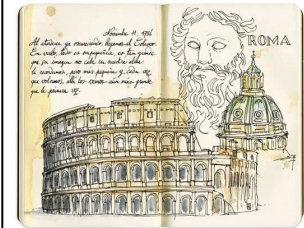 Noviembre 11, 1786
Al atardecer, ya anocheciendo, llegamos al Coliseo.
En verdad, todo es empequeñece, es tan grande
que su imagen no cabe en nuestra alma
lo recordamos, pero más pequeño y cada vez
que volvemos, ella lo es más grande
que la primera vez.
ROMA